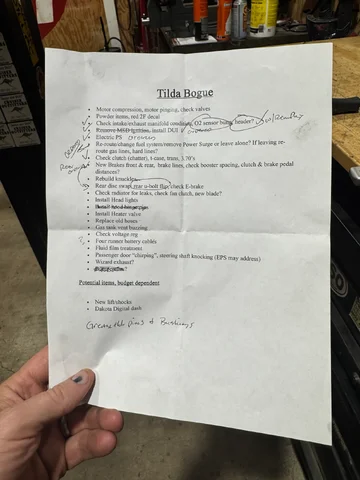 Tilda Bogue
Motor compression, motor pinging, check valves
Powder items, red 2F decal
Check intake/exhaust manifold condition, O2 sensor bung, header?
Remove MSD ignition, install DUI
Electric PS
Re-route/change fuel system/remove Power Surge or leave alone? If leaving re-
route gas lines, hard lines?
Check clutch (chatter), t-case, trans, 3.70's
New Brakes front & rear, brake lines, check booster spacing, clutch & brake pedal
distances?
Rebuild knuckles
Rear disc swap, rear u-bolt flat, check E-brake
Check radiator for leaks, check fan clutch, new blade?
Install Head lights
Install Heater
Install Heater valve
Replace old hoses
Gas tank vent buzzing
Check voltage reg
Four runner battery cables
Fluid film treatment
Passenger door "chirping", steering shaft knocking (EPS may address)
Wizard exhaust?
Potential items, budget dependent
New lift/shocks
Dakota Digital dash
Greaseable pins & Bushings